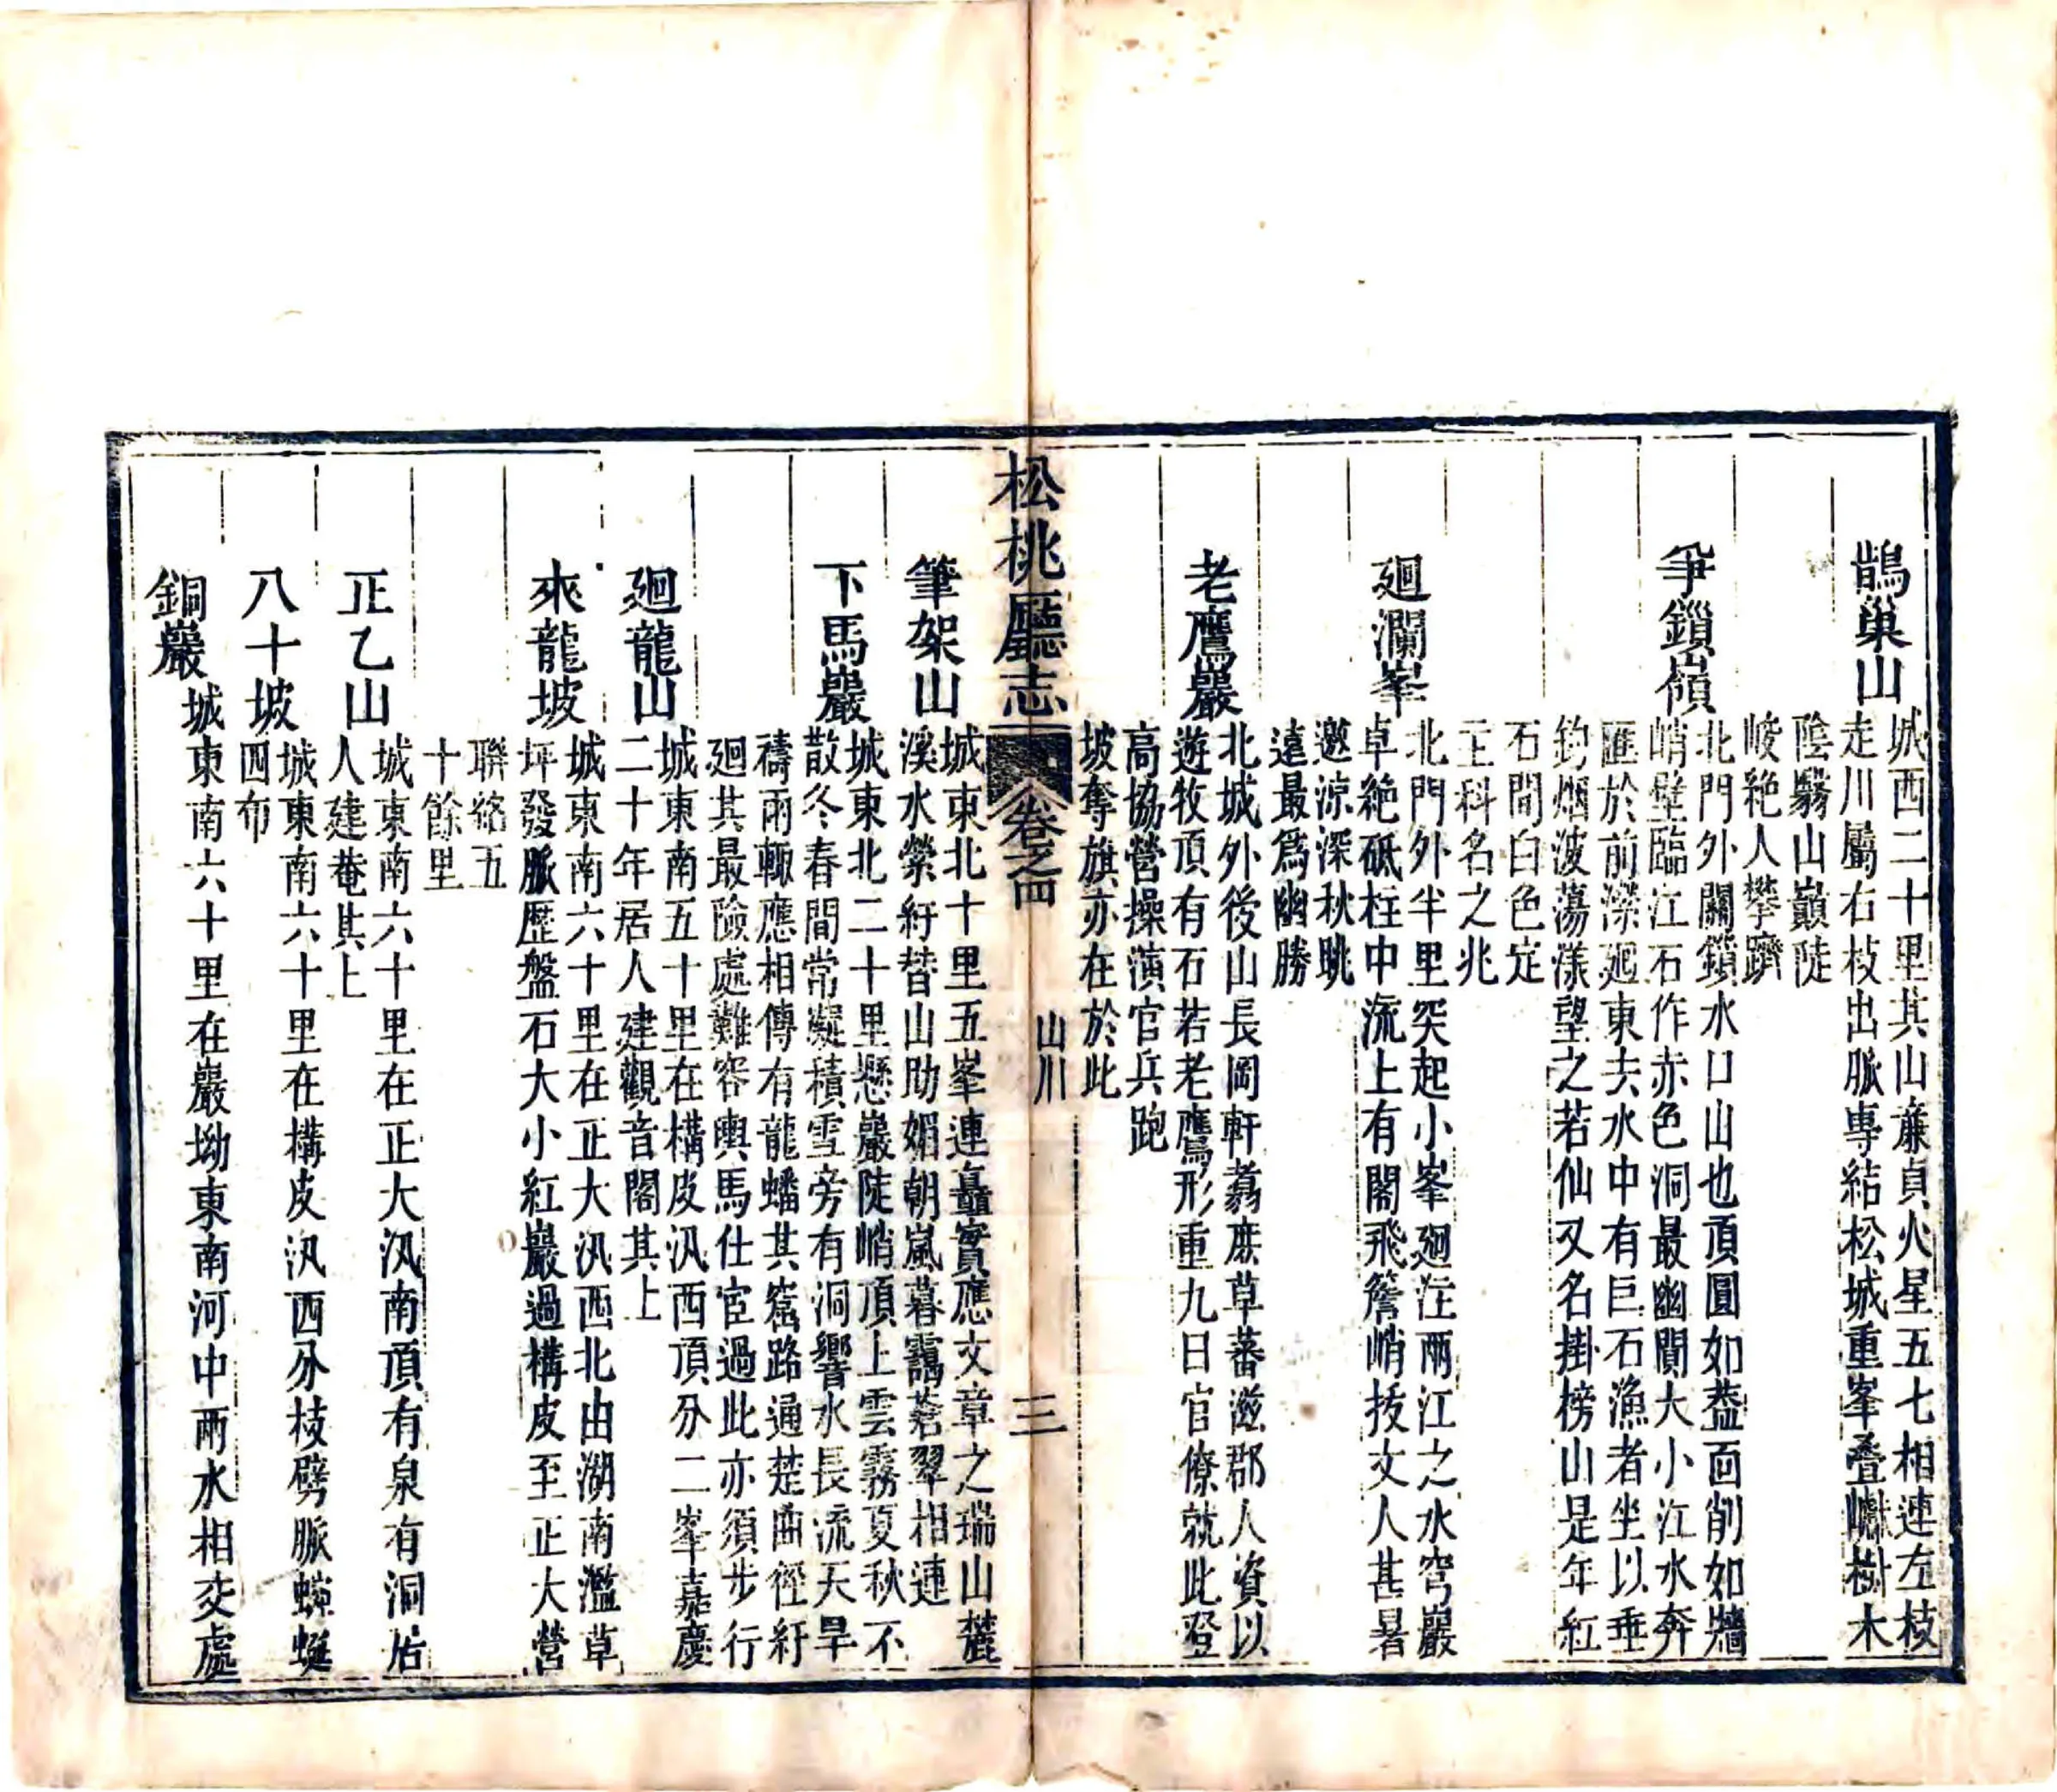 鵲巢山
城西二十里其山亷貞火星五七相連左枝
走川屬右枝出脈專結松城重峯叠巘樹木
陰翳山巔陡
峻絕人攀躋
爭鎖嶺
北門外關鎖水口山也頂圓如葢面削如牆
峭壁臨江石作赤色洞最幽閴大小江水奔
匯於前瀠廻東去水中有巨石漁者坐以垂
釣烟波蕩漾望之若仙又名掛榜山是年紅
石間白色㝎
主科名之兆
廻瀾峯
北門外半里突起小峯廻注兩江之水穹巖
卓絶砥柱中流上有閣飛簷峭拔文人甚暑
邀凉深秋眺
遠最爲幽勝
老鷹巖
北城外後山長岡軒翥庶草蕃滋郡人資以
遊牧頂有石若老鷹形重九日官僚就此登
高協營操演官兵跑
坡奪旗亦在於此
松桃廳志
卷之四
山川
三
筆架山
城東北十里五峯連矗實應文章之瑞山麓
溪水縈紆替山助媚朝嵐暮靄蒼翠相連
下馬巖
城東北二十里懸巖陡峭頂上雲霧夏秋不
散冬春間常凝積雪旁有洞響水長流天旱
禱雨輙應相傳有龍蟠其窟路通楚曲徑紆
廻其最險處難容輿馬仕宦過此亦須步行
廻龍山
城東南五十里在構皮汛西頂分二峯嘉慶
二十年居人建觀音閣其上
來龍坡
城東南六十里在正大汛西北由湖南濫草
坪發脈歷盤石大小紅巖過構皮至正大營
聯絡五
十餘里
正乙山
城東南六十里在正大汛南頂有泉有洞居
人建菴其上
八十坡
城東南六十里在構皮汛西分枝劈脈蜿蜒
四布
銅巖
城東南六十里在巖坳東南河中兩水相交處